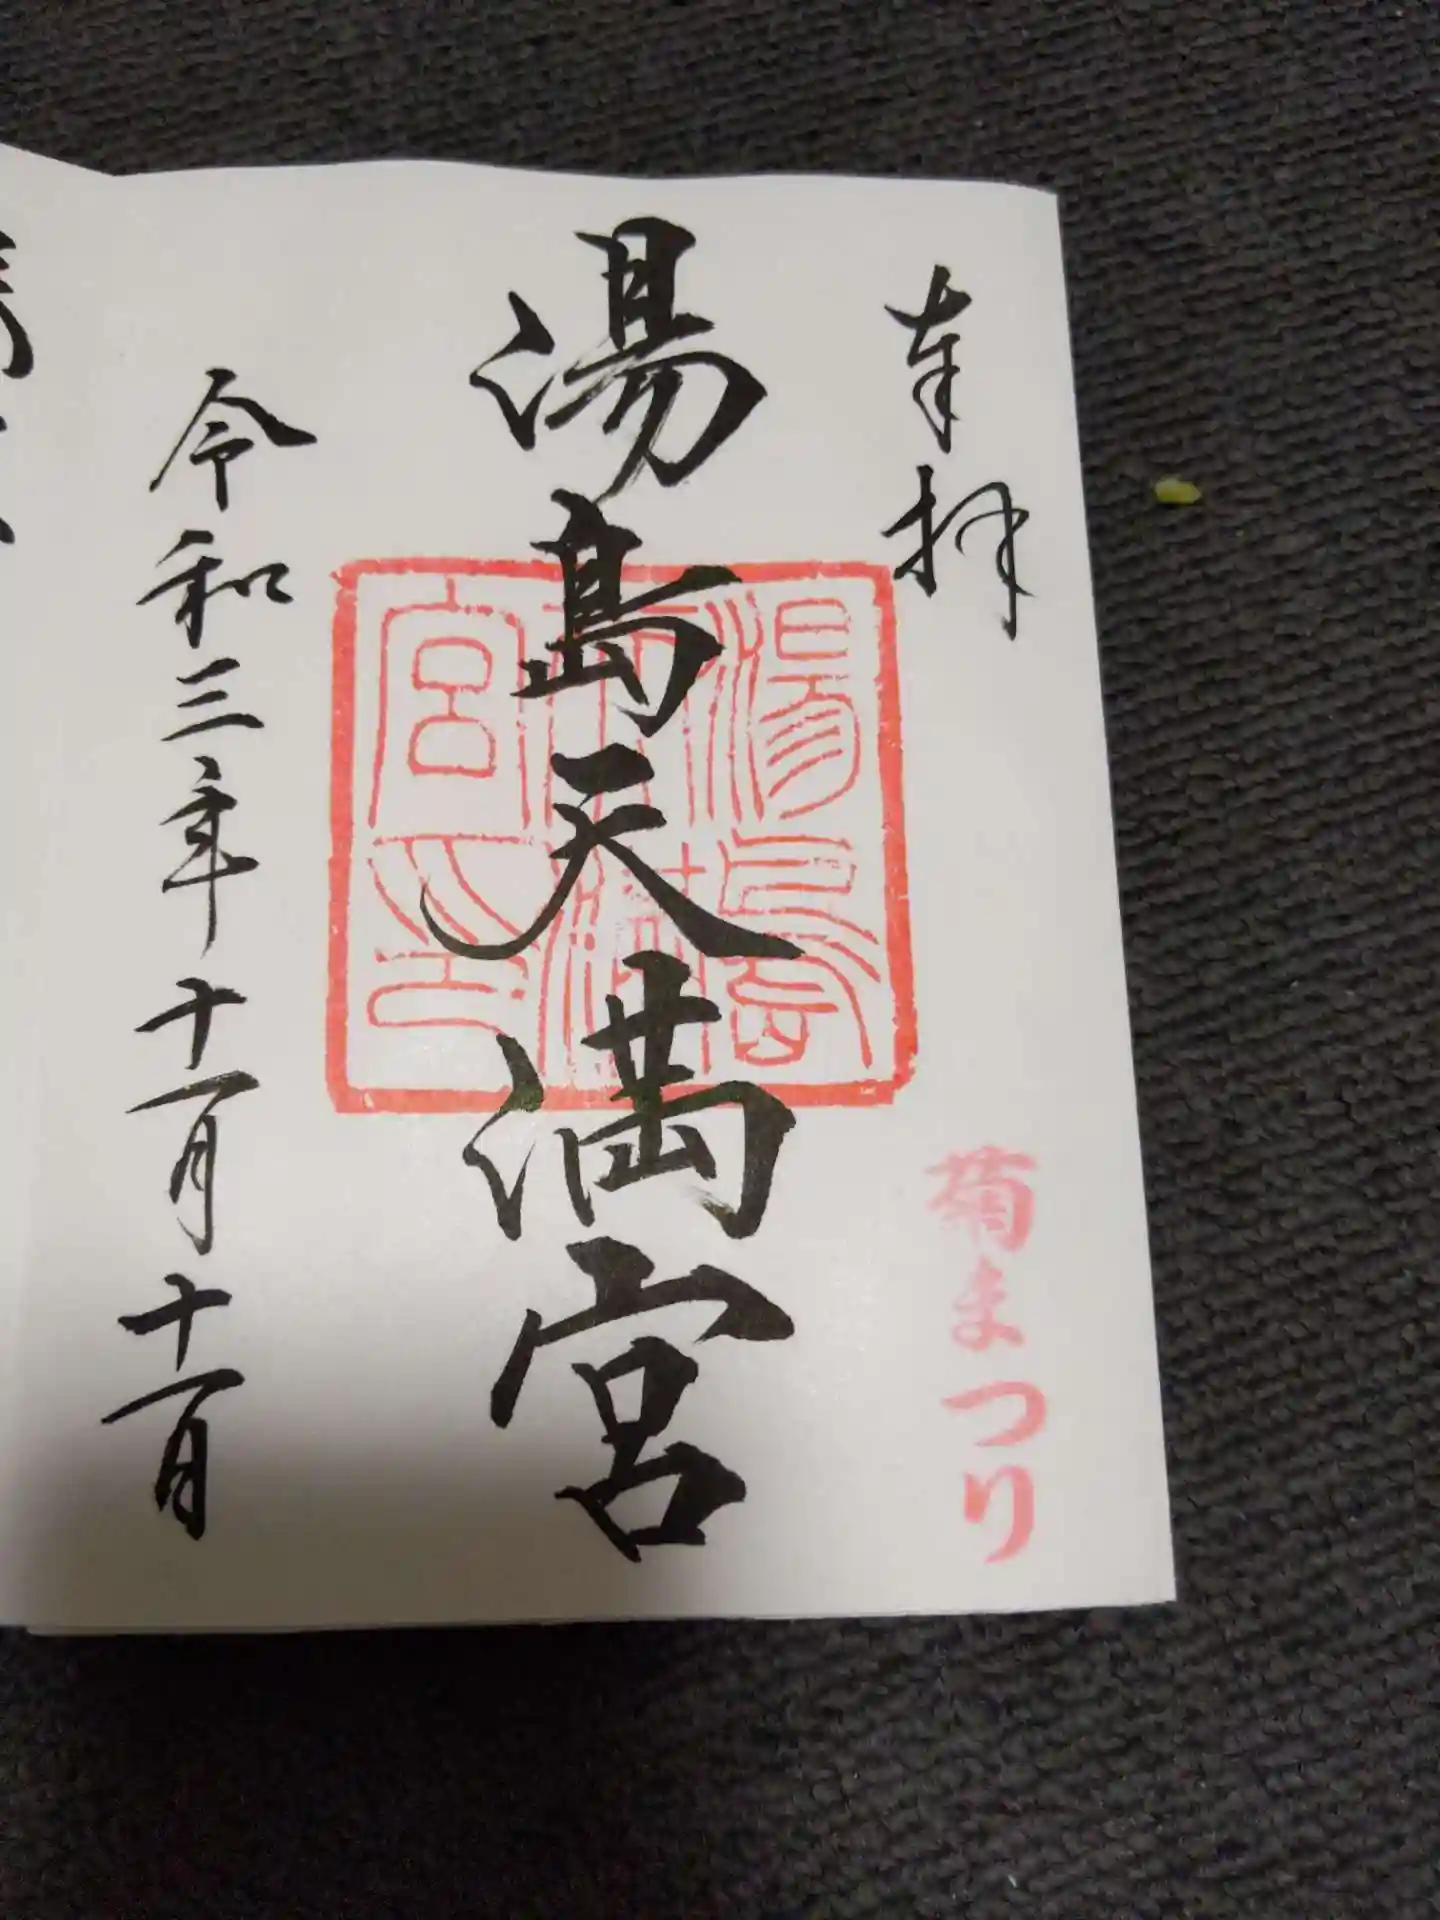 奉拝
菊まつり
湯島天満宮
湯島
天満
宮印
令和三年十一月十一日